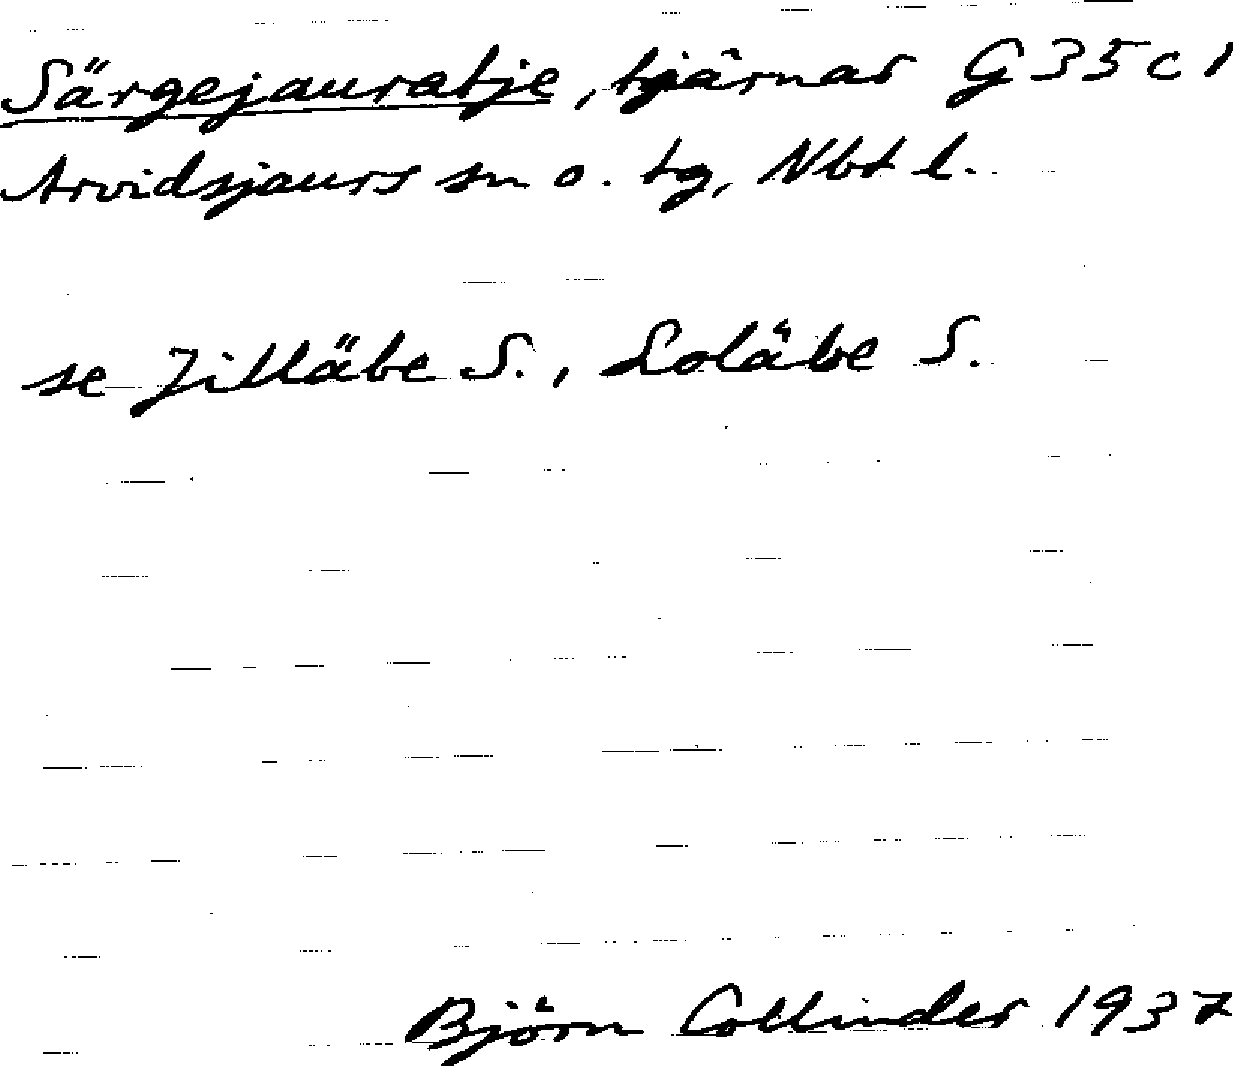 Särgejauratje, tjärnar G 35 c 1
Arvidsjaurs sn o. tg, Nbt l.
se Jilläbe S., Loläbe S.
Björn Collinder 1937